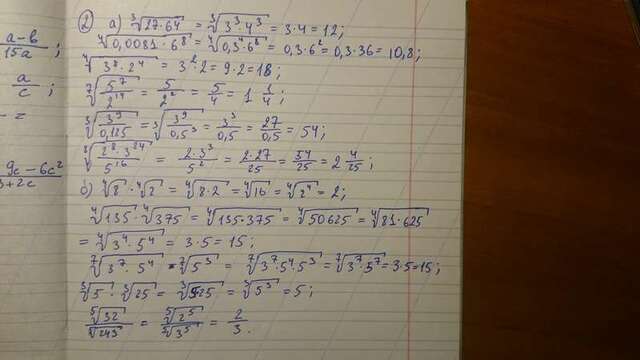 2) а) ∛(27·64) = ∛(3³·4³) = 3·4 = 12;
⁴√(0,0081·6⁸) = ⁴√(0,3⁴·6⁸) = 0,3·6² = 0,3·36 = 10,8;
⁴√(3⁸·2⁴) = 3²·2 = 9·2 = 18;
⁷√(5⁷/2¹⁴) = 5/2² = 5/4 = 1 1/4;
∛(3⁹/0,125) = ∛(3⁹/0,5³) = 3³/0,5 = 27/0,5 = 54;
⁸√(2⁸·3²⁴/5¹⁶) = 2·3³/5² = 2·27/25 = 54/25 = 2 4/25;
б) ⁴√8 · ⁴√2 = ⁴√(8·2) = ⁴√16 = ⁴√(2⁴) = 2;
⁴√135 · ⁴√375 = ⁴√(135·375) = ⁴√50625 = ⁴√(81·625)
= ⁴√(3⁴·5⁴) = 3·5 = 15;
⁷√(3⁷·5⁴) · ⁷√(5³) = ⁷√(3⁷·5⁴·5³) = ⁷√(3⁷·5⁷) = 3·5 = 15;
∛5 · ∛25 = ∛125 = ∛(5³) = 5;
⁵√32 / ⁵√243 = ⁵√(2⁵) / ⁵√(3⁵) = 2/3.
a-b
15a ;
a
c ;
9c-6c²
+2c